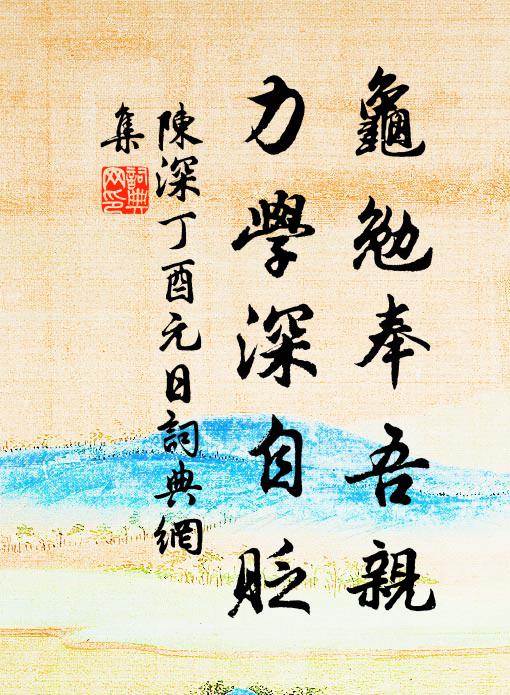 黽勉奉吾親
力學深自貶
陳深丁酉元日詞典網
集
詞典
网印